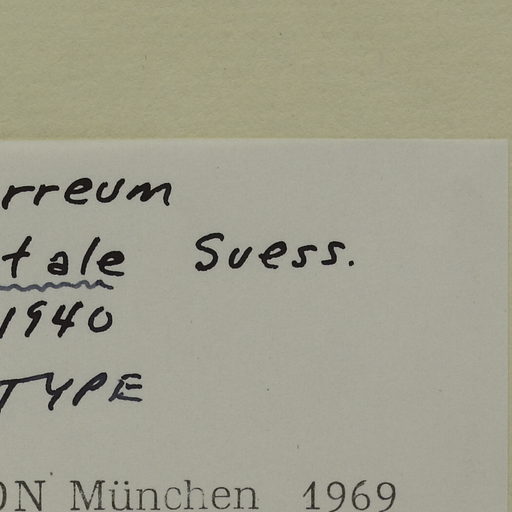 rreum
tale Suess.
1940
TYPE
ON München 1969